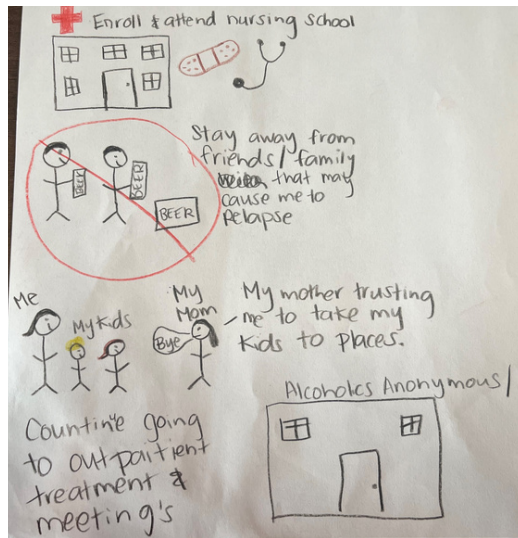 Enroll & attend nursing school
Stay away from
friends/ family
that may
cause me to
relapse
BEER
BEER
BEER
Me
My Kids
My
Mom
Bye
My mother trusting
me to take my
Kids to places.
Alcoholics Anonymous/
Countinve going
to outpaitient
treatment &
meeting's